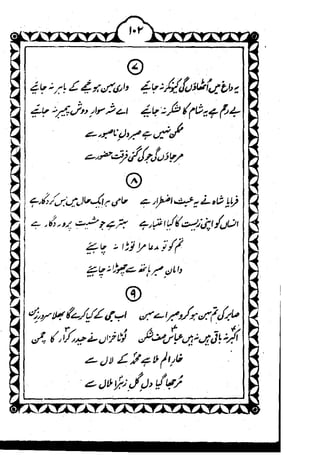 ۱۰۲
۷
یہ داغ میں اٹھاؤں گی کیونکر نہ جائیے واری حسین خیمے کے باہر نہ جائیے
بے رحم ہے یہ شام کا لشکر نہ جائیے اے شہ سوار دوش پیمبر نہ جائیے
ممکن نہیں ہے صبر دل ناصبور سے
مر جاؤں گی جو کی گئی فرقت حضور سے
۸
فرمایا شاہ نے یہ عبث اضطرار ہے حامی ہر ایک حال میں بس کردگار ہے
انساں کو اپنی زیست کا کیا اعتبار ہے بہتر ہے جو مشیت پروردگار ہے
تم کو تو مدعا مرا توڑا نہ چاہیئے
دامان صبر ہاتھ سے چھوڑا نہ چاہیئے
۹
صابر کی تم بہن ہو کرو صبر اے بہن اب جی کے کیا کرے گا بھلا سرور زمن
اکبر نہ باقی ہیں نہ ہیں عباس صف شکن لوٹا خزاں نے حیدر کرار کا چمن
خار الم ملا ہے محمد کے لال سے
مرجھا گیا دل گل زہرا ملال سے